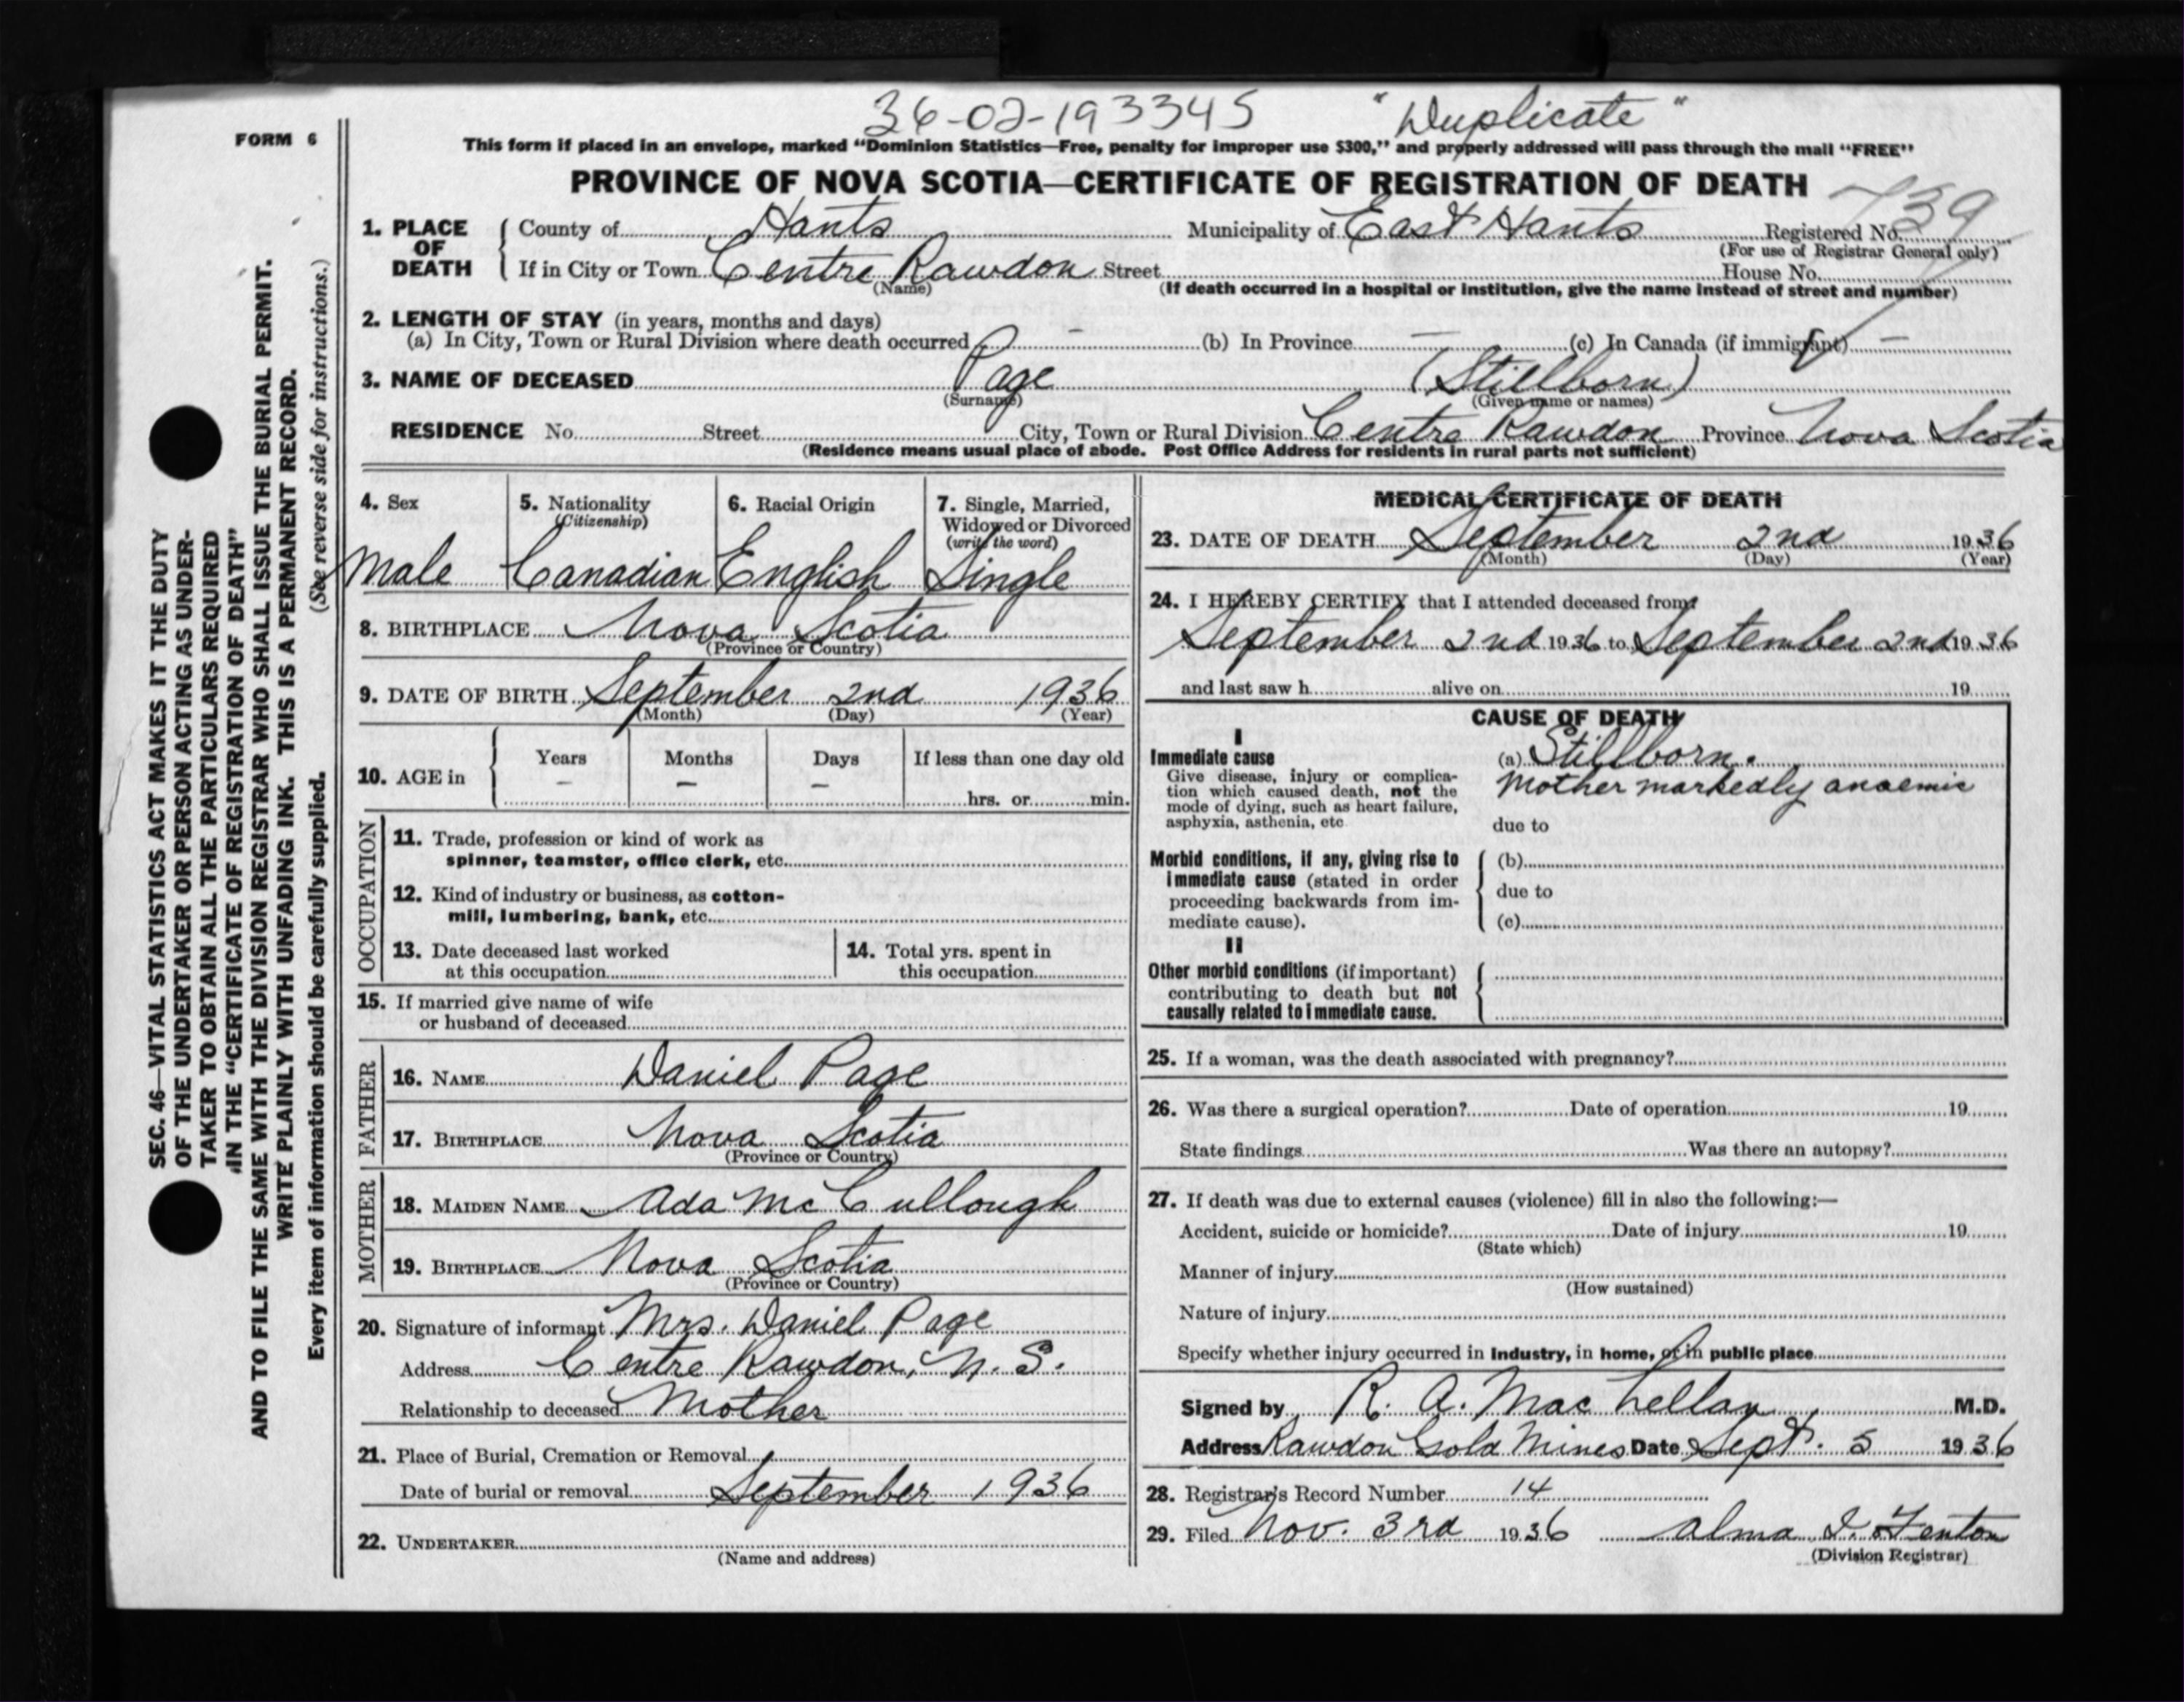 36-02-193345 "Duplicate"
FORM 6
This form if placed in an envelope, marked "Dominion Statistics—Free, penalty for improper use $300," and properly addressed will pass through the mail "FREE"
PROVINCE OF NOVA SCOTIA—CERTIFICATE OF REGISTRATION OF DEATH
739
1. PLACE OF DEATH { County of Hants Municipality of East Hants Registered No.
(For use of Registrar General only)
If in City or Town Centre Rawdon Street House No.
(Name) (If death occurred in a hospital or institution, give the name instead of street and number)
2. LENGTH OF STAY (in years, months and days)
(a) In City, Town or Rural Division where death occurred - (b) In Province — (c) In Canada (if immigrant) —
3. NAME OF DECEASED Page (Stillborn)
(Surname) (Given name or names)
RESIDENCE No. Street City, Town or Rural Division Centre Rawdon Province Nova Scotia
(Residence means usual place of abode. Post Office Address for residents in rural parts not sufficient)
4. Sex 5. Nationality 6. Racial Origin 7. Single, Married,
(Citizenship) Widowed or Divorced
(write the word)
Male Canadian English Single
8. BIRTHPLACE Nova Scotia
(Province or Country)
9. DATE OF BIRTH September 2nd 1936
(Month) (Day) (Year)
10. AGE in { Years Months Days If less than one day old
— — —
hrs. or min.
OCCUPATION
11. Trade, profession or kind of work as
spinner, teamster, office clerk, etc.
12. Kind of industry or business, as cotton-
mill, lumbering, bank, etc.
13. Date deceased last worked 14. Total yrs. spent in
at this occupation this occupation
15. If married give name of wife
or husband of deceased
FATHER
16. NAME Daniel Page
17. BIRTHPLACE Nova Scotia
(Province or Country)
MOTHER
18. MAIDEN NAME Ada McCullough
19. BIRTHPLACE Nova Scotia
(Province or Country)
20. Signature of informant Mrs. Daniel Page
Address Centre Rawdon, N. S.
Relationship to deceased Mother
21. Place of Burial, Cremation or Removal
Date of burial or removal September 1936
22. UNDERTAKER
(Name and address)
MEDICAL CERTIFICATE OF DEATH
23. DATE OF DEATH September 2nd 1936
(Month) (Day) (Year)
24. I HEREBY CERTIFY that I attended deceased from:
September 2nd 1936 to September 2nd 1936
and last saw h alive on 19
CAUSE OF DEATH
I
Immediate cause (a) Stillborn.
Give disease, injury or complica- Mother markedly anaemic
tion which caused death, not the
mode of dying, such as heart failure,
asphyxia, asthenia, etc due to
Morbid conditions, if any, giving rise to { (b)
immediate cause (stated in order
proceeding backwards from im- due to
mediate cause). (c)
II
Other morbid conditions (if important)
contributing to death but not
causally related to immediate cause.
25. If a woman, was the death associated with pregnancy?
26. Was there a surgical operation? Date of operation 19
State findings Was there an autopsy?
27. If death was due to external causes (violence) fill in also the following:—
Accident, suicide or homicide? Date of injury 19
(State which)
Manner of injury
(How sustained)
Nature of injury
Specify whether injury occurred in Industry, in home, or in public place
Signed by R. A. MacLellan M.D.
Address Rawdon Gold Mines Date Sept. 5 1936
28. Registrar's Record Number 14
29. Filed Nov. 3rd 1936 Alma I. Fenton
(Division Registrar)
SEC. 46—VITAL STATISTICS ACT MAKES IT THE DUTY
OF THE UNDERTAKER OR PERSON ACTING AS UNDER-
TAKER TO OBTAIN ALL THE PARTICULARS REQUIRED
IN THE "CERTIFICATE OF REGISTRATION OF DEATH"
AND TO FILE THE SAME WITH THE DIVISION REGISTRAR WHO SHALL ISSUE THE BURIAL PERMIT.
WRITE PLAINLY WITH UNFADING INK. THIS IS A PERMANENT RECORD.
Every item of information should be carefully supplied. (See reverse side for instructions.)